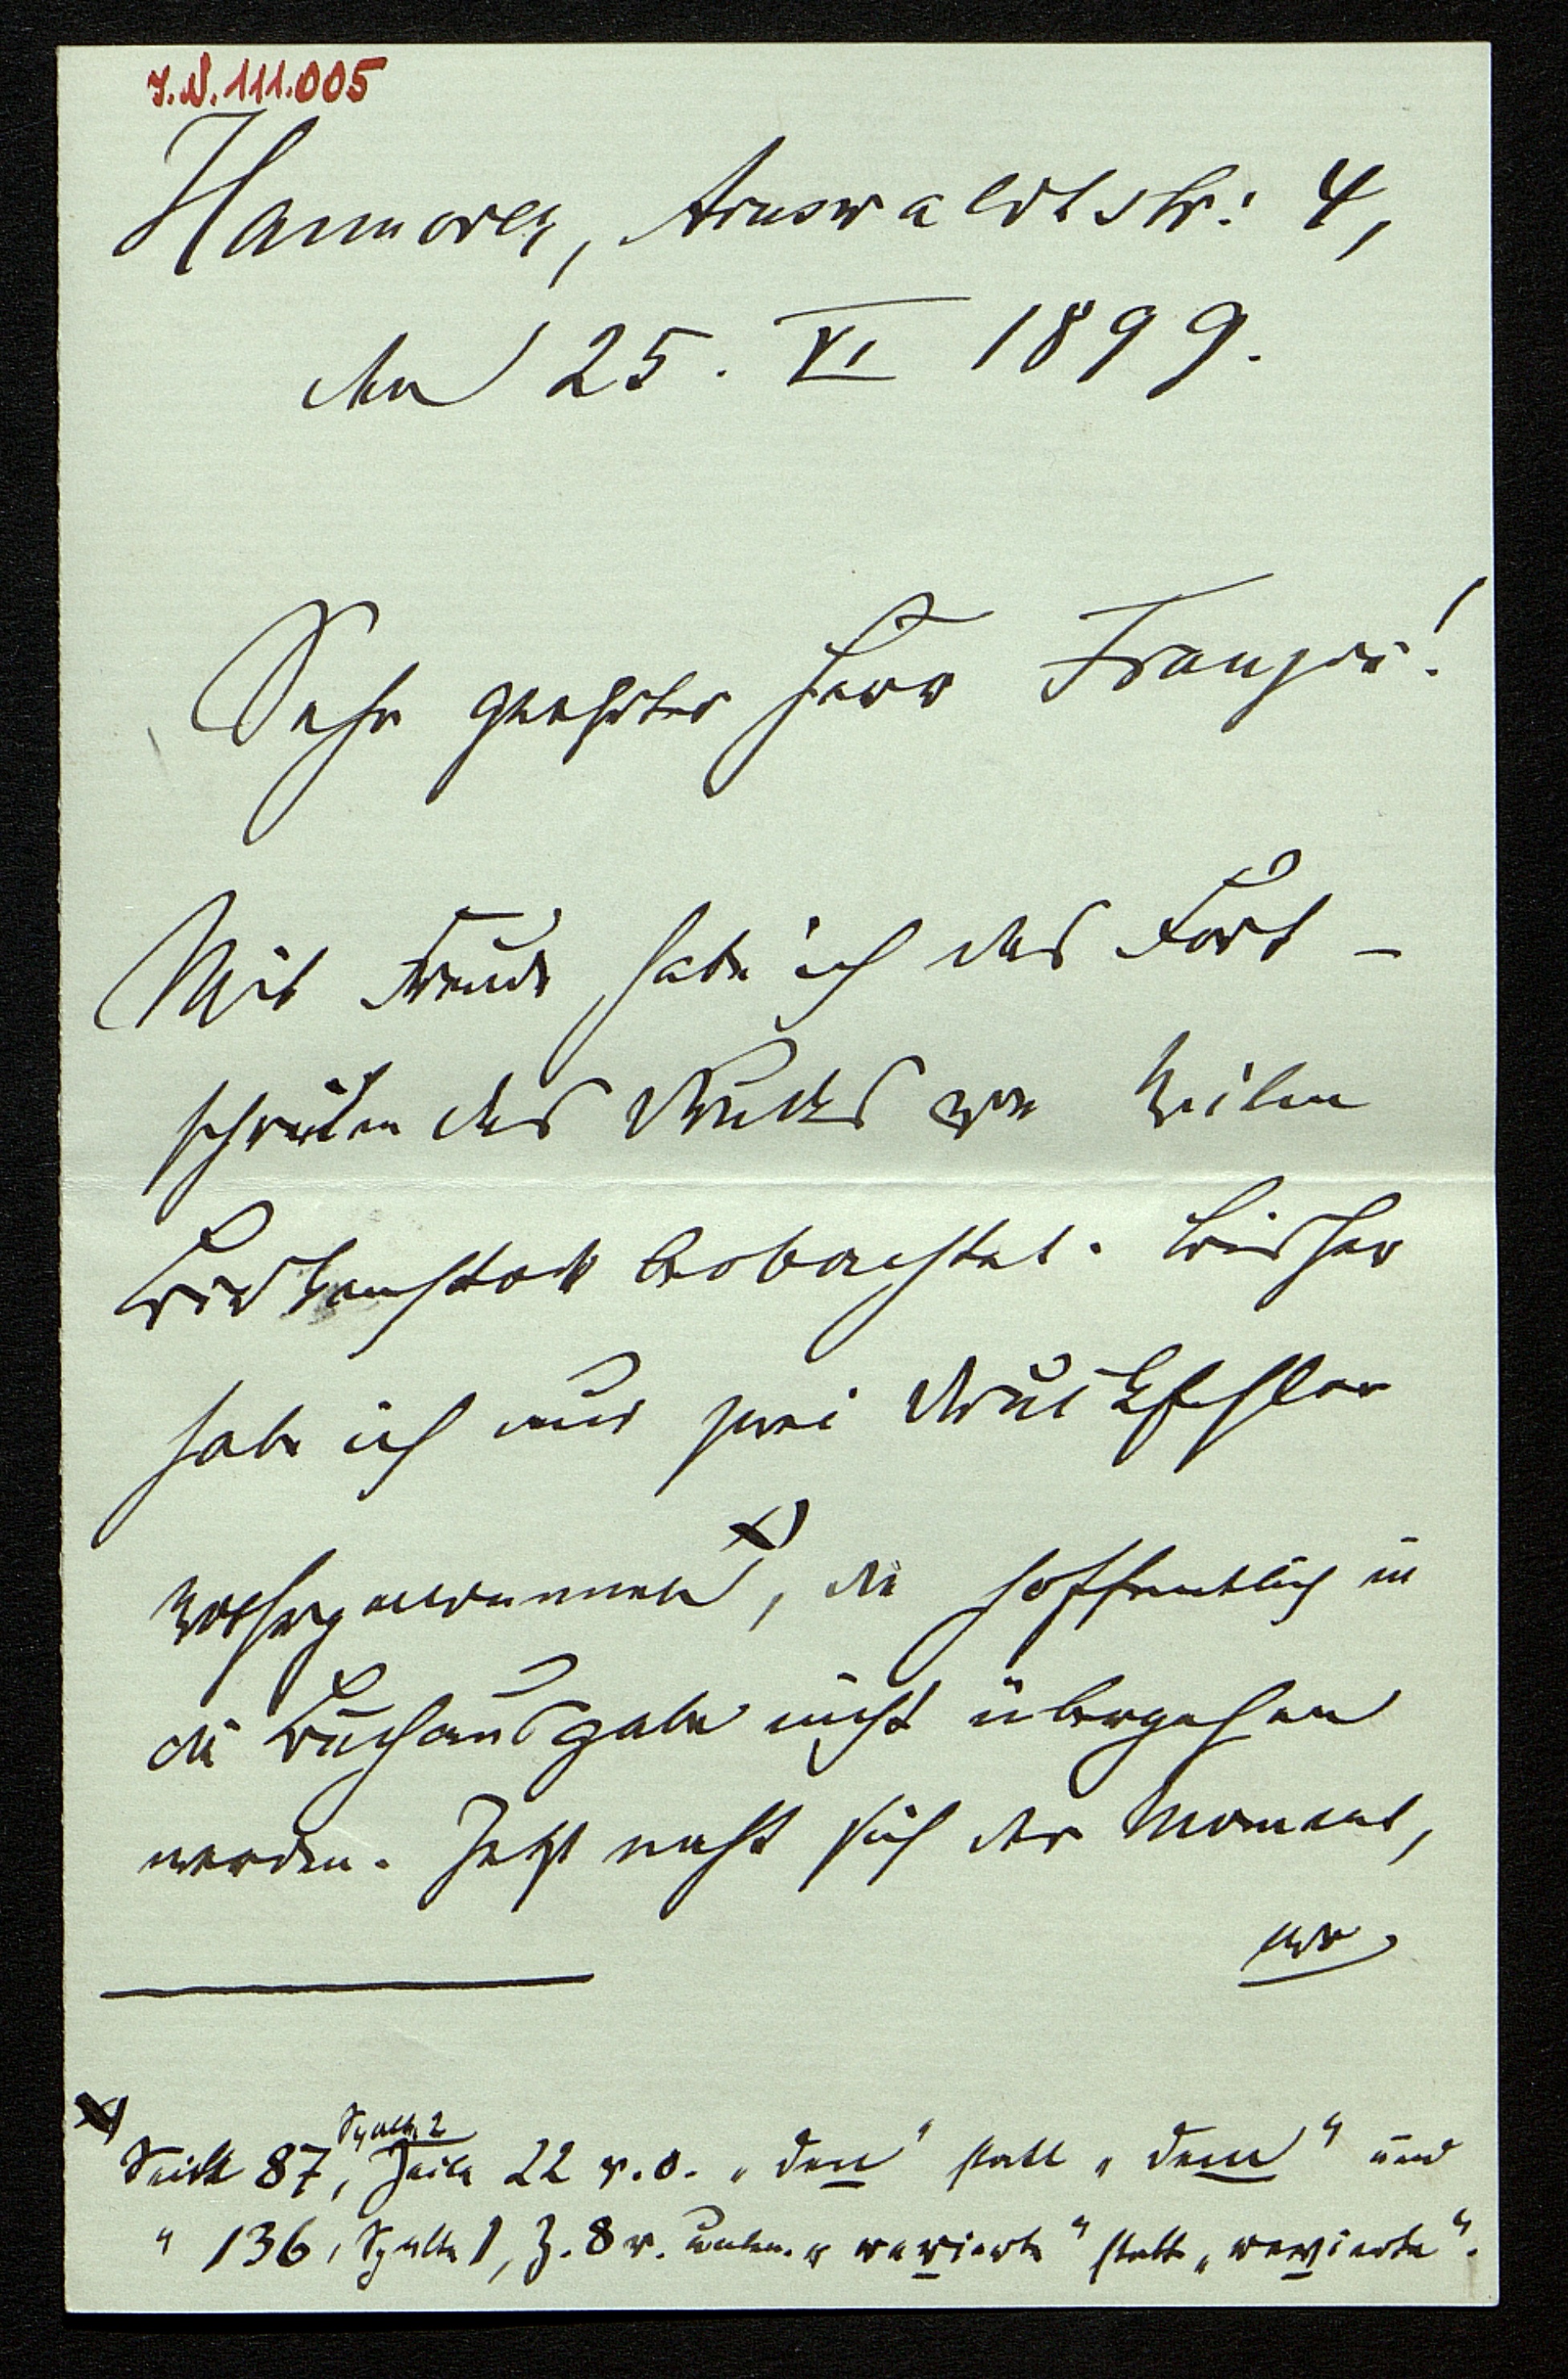 J.N. 111.005
Hannover, Arnswaldtstr: 4,
den 25. VI 1899.
Sehr geehrter Herr Franzos!
Mit Freude habe ich das Fort-
schreiten des Drucks von
beobachtet. Bisher
habe ich nur zwei Druckfehler
wahrgenommen x), die hoffentlich in
die Buchausgabe nicht übergehen
werden. Jetzt naht sich der Moment,
wo
x) Seite 87, Spalte 2 Zeile 22 v. o. „den" statt „dem" und
" 136, Spalte 1, Z. 8 v. unten. „ statt „